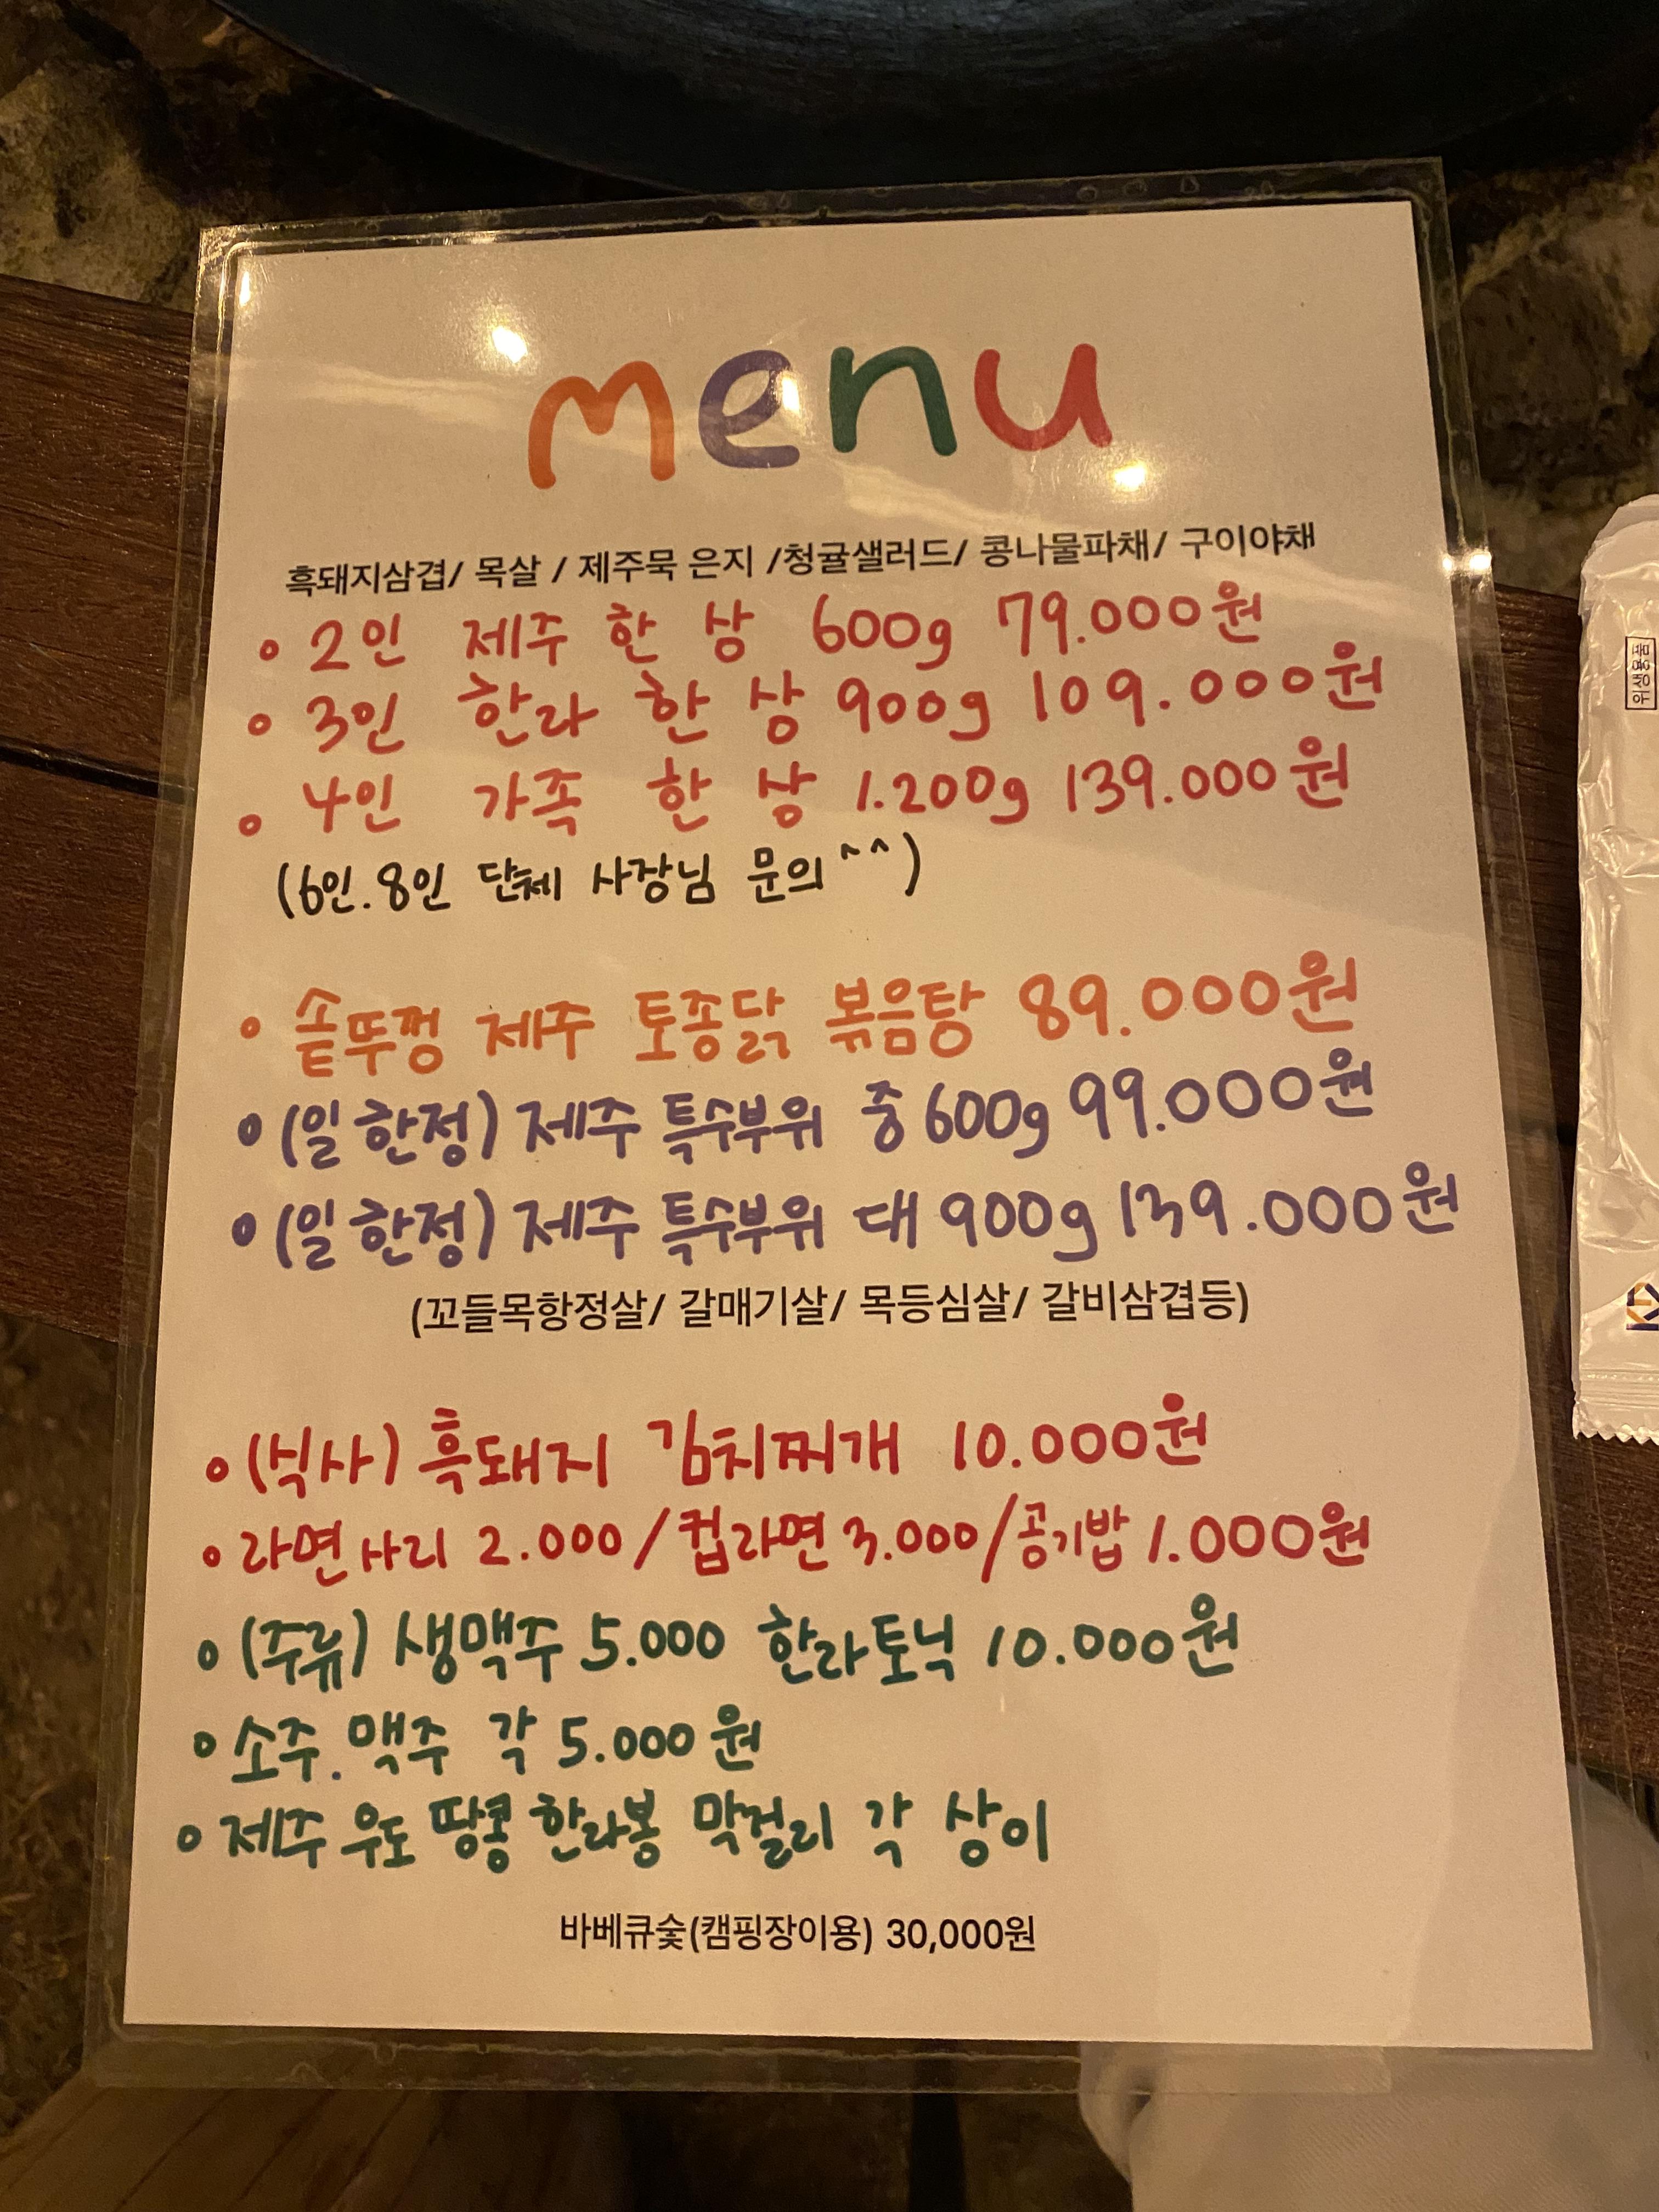 menu
흑돼지삼겹/ 목살 / 제주묵 은지 /청귤샐러드/ 콩나물파채/ 구이야채
• 2인 제주 한 상 600g 79.000원
• 3인 한라 한 상 900g 109.000원
• 4인 가족 한 상 1.200g 139.000원
(6인.8인 단체 사장님 문의^^)
• 솥뚜껑 제주 토종닭 볶음탕 89.000원
• (일 한정) 제주 특수부위 중 600g 99.000원
• (일 한정) 제주 특수부위 대 900g 139.000원
(꼬들목항정살/ 갈매기살/ 목등심살/ 갈비삼겹등)
• (식사) 흑돼지 김치찌개 10.000원
• 라면사리 2.000/컵라면 3.000/공기밥 1.000원
• (주류) 생맥주 5.000 한라토닉 10.000원
• 소주.맥주 각 5.000원
• 제주 우도 땅콩 한라봉 막걸리 각 상이
바베큐숯(캠핑장이용) 30,000원
위생용품